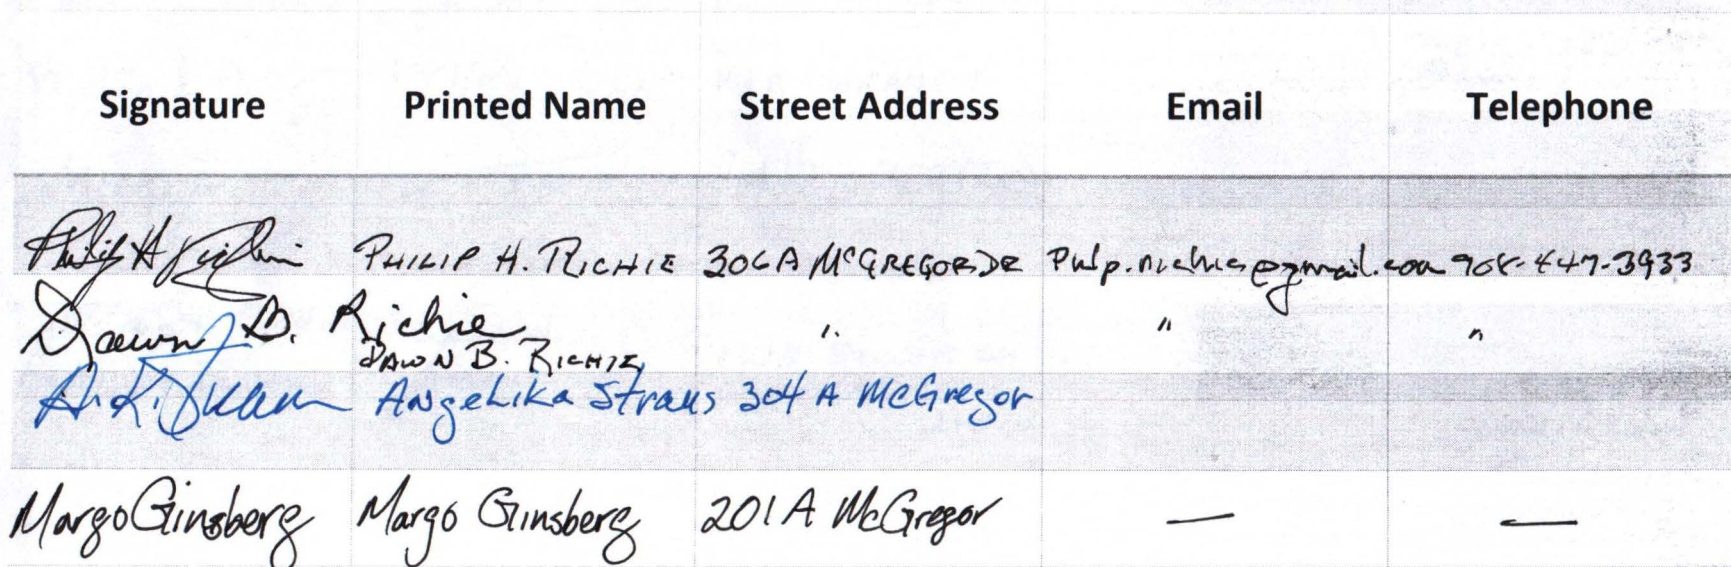 Signature Printed Name Street Address Email Telephone
Philip H Richie PHILIP H. RICHIE 306A McGREGOR DR @gmail.com 3933
Dawn B. Richie " " "
DAWN B. RICHIE
Angelika Straus 304 A McGregor
Margo Ginsberg Margo Ginsberg 201A McGregor — —